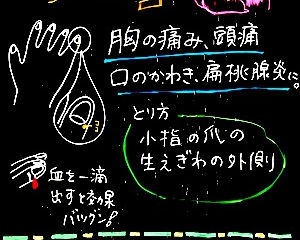 胸の痛み、頭痛
口のかわき、扁桃腺炎に。
とり方
小指の爪の
生えぎわの外側
血を一滴
出すと効果
バツグン!